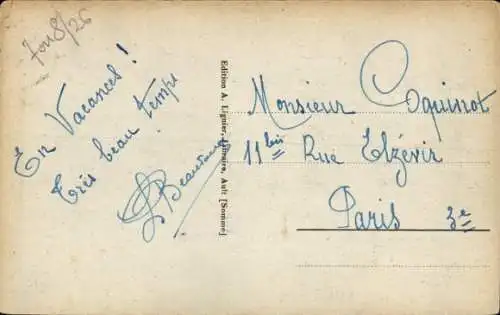 En Vacances !
Très beau temps
Edition A. Lignier, Libraire, Ault [Somme]
Monsieur Coquinot
11 bis Rue Elzévir
Paris 3e